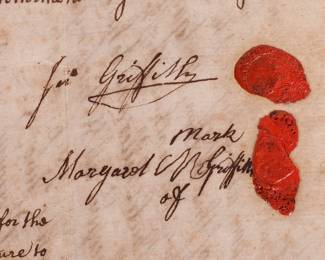 Jno Griffith
mark
Margaret M Griffith
of
for the
are to